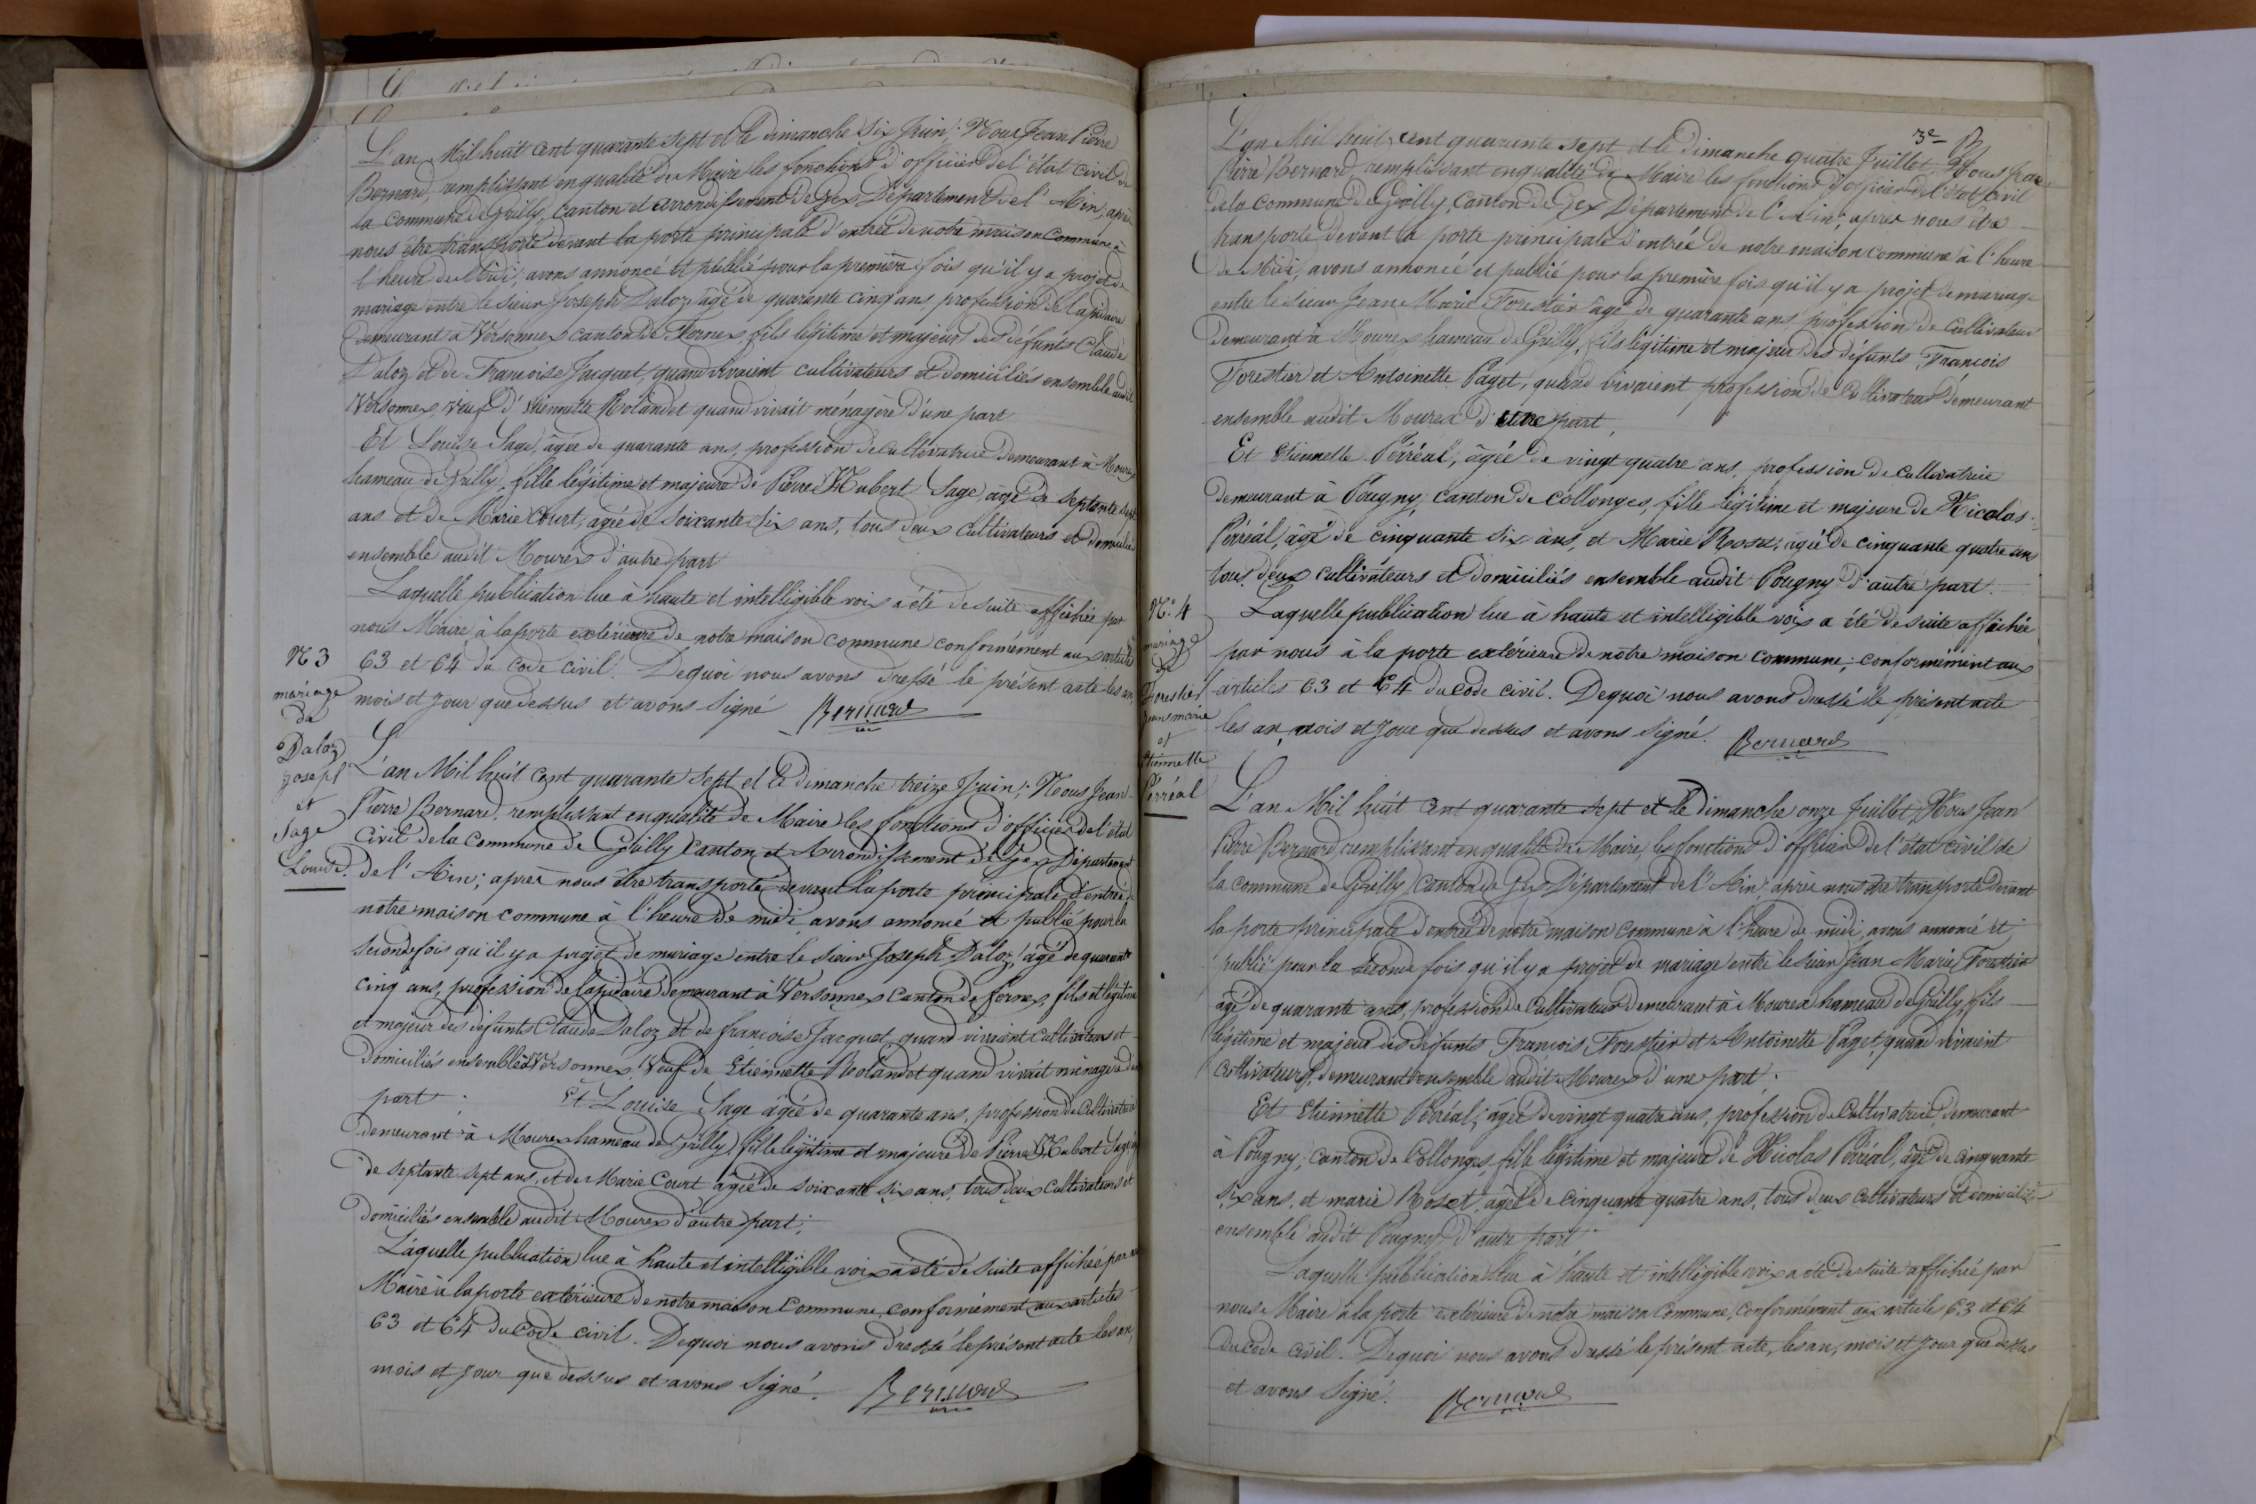 L'an Mil huit cent quarante sept et le dimanche Six Juin; Nous Jean Pierre
Bernard, remplissant en qualité de Maire les fonctions d'officier de l'état civil de
la commune de Grilly, Canton et arrondissement de Gex, Département de l'Ain, après
nous être transporté devant la porte principale d'entrée de notre maison commune à
l'heure de Midi, avons annoncé et publié pour la première fois qu'il y a projet de
mariage entre le sieur Joseph Daloz âgé de quarante cinq ans, profession de Lapidaire
demeurant à Versonnex canton de Fernex, fils légitime et majeur des défunts Claude
Daloz et de Françoise Jacquet, quand vivaient cultivateurs et domiciliés ensemble audit
Versonnex, veuf d'Etiennette Rolandet quand vivait ménagère d'une part
Et Louise Sage, âgée de quarante ans, profession de cultivatrice demeurant à Mourex
hameau de Grilly, fille légitime et majeure de Pierre Hubert Sage, âgé de septante sept
ans et de Marie Court, agée de soixante six ans, tous deux cultivateurs et domiciliés
ensemble audit Mourex d'autre part
Laquelle publication lue à haute et intelligible voix a été de suite affichée par
nous Maire à la porte extérieure de notre maison commune conformément aux articles
63 et 64 du code civil. Dequoi nous avons dressé le présent acte les an
mois et jour que dessus et avons signé Bernard
N 3
mariage
de
Daloz
Joseph
et
Sage
Louise.
L'an Mil huit cent quarante sept et le dimanche treize Juin; Nous Jean
Pierre Bernard, remplissant en qualité de Maire les fonctions d'officier de l'état
civil de la commune de Grilly Canton et Arrondissement de Gex Département
de l'Ain; après nous être transporté devant la porte principale d'entrée de
notre maison commune à l'heure de midi avons annoncé et publié pour la
seconde fois qu'il y a projet de mariage entre le sieur Joseph Daloz, âgé de quarante
cinq ans, profession de lapidaire demeurant à Versonnex Canton de fernex, fils légitime
et majeur des défunts Claude Daloz et de françoise Jacquet, quand vivaient cultivateurs et
domiciliés ensemble à Versonnex, Veuf de Etiennette Rolandet quand vivait ménagère d'une
part; Et Louise Sage âgée de quarante ans, profession de Cultivatrice
demeurant à Mourex hameau de Grilly, fille légitime et majeure de Pierre Hubert Sage âgé
de septante sept ans, et de Marie Court agée de soixante six ans, tous deux cultivateurs et
domiciliés ensemble audit Mourex d'autre part;
Laquelle publication lue à haute et intelligible voix a été de suite affichée par nous
Maire à la porte extérieure de notre maison commune conformément aux articles
63 et 64 du Code civil. Dequoi nous avons dressé le présent acte les an,
mois et jour que dessus et avons signé. Bernard
3e
L'an Mil huit cent quarante sept et le dimanche quatre Juillet, Nous Jean
Pierre Bernard, remplissant en qualité de Maire les fonctions d'officier de l'état civil
de la commune de Grilly, Canton de Gex Département de l'Ain; après nous être
transporté devant la porte principale d'entrée de notre maison commune à l'heure
de Midi, avons annoncé et publié pour la première fois qu'il y a projet de mariage
entre le sieur Jean Marie Forestier âgé de quarante ans, profession de Cultivateur
demeurant à Mourex hameau de Grilly, fils légitime et majeur des défunts François
Forestier et Antoinette Paget, quand vivaient profession de Cultivateur demeurant
ensemble audit Mourex d'une part,
Et Etiennette Perréal, âgée de vingt quatre ans, profession de cultivatrice
demeurant à Pougny, canton de Collonges, fille légitime et majeure de Nicolas
Perréal, âgé de cinquante six ans, et Marie Roset, agée de cinquante quatre ans
tous deux cultivateurs et domiciliés ensemble audit Pougny d'autre part.
Laquelle publication lue à haute et intelligible voix a été de suite affichée
par nous à la porte extérieure de notre maison commune; conformément aux
articles 63 et 64 du code civil. Dequoi nous avons dressé le présent acte
les an, mois et jour que dessus et avons signé. Bernard
N: 4
mariage
de
Forestier
Jean marie
et
Etiennette
Perréal
L'an Mil huit cent quarante sept et le dimanche onze Juillet, Nous Jean
Pierre Bernard, remplissant en qualité de Maire, les fonctions d'officier de l'état civil de
la commune de Grilly Canton de Gex Département de l'Ain; après nous être transporté devant
la porte principale d'entrée de notre maison commune à l'heure de midi, avons annoncé et
publié pour la seconde fois qu'il y a projet de mariage entre le sieur Jean Marie Forestier
âgé de quarante ans, profession de Cultivateur demeurant à Mourex hameau de Grilly, fils
légitime et majeur des défunts François Forestier et Antoinette Paget, quand vivaient
Cultivateurs, demeurant ensemble audit Mourex d'une part;
Et Etiennette Perréal, âgée de vingt quatre ans, profession de Cultivatrice, demeurant
à Pougny, Canton de Collonges, fille légitime et majeure de Nicolas Perréal, âgé de cinquante
six ans, et marie Roset, agée de cinquante quatre ans, tous deux cultivateurs et domiciliés
ensemble audit Pougny d'autre part
Laquelle publication lue à haute et intelligible voix a été de suite affichée par
nous Maire à la porte extérieure de notre maison commune, conformément aux articles 63 et 64
du code civil. Dequoi nous avons dressé le présent acte, les an, mois et jour que dessus
et avons signé. Bernard